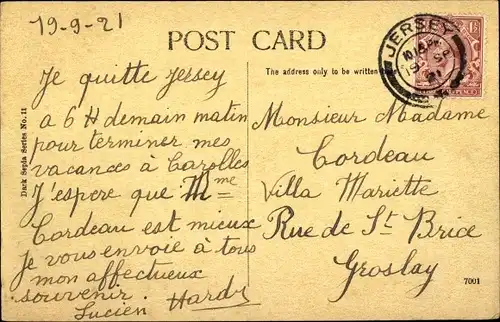 19-9-21
POST CARD
JERSEY
The address only to be written
Je quitte Jersey
a 6 H demain matin
pour terminer mes
vacances à Carolles
J'espere que Mme
Cordeau est mieux
Je vous envoie à tous
mon affectueux
souvenir.
Lucien Hardy
Monsieur Madame
Cordeau
Villa Mariette
Rue de St Brice
Groslay
Duck Sepia Series No. 11
7001